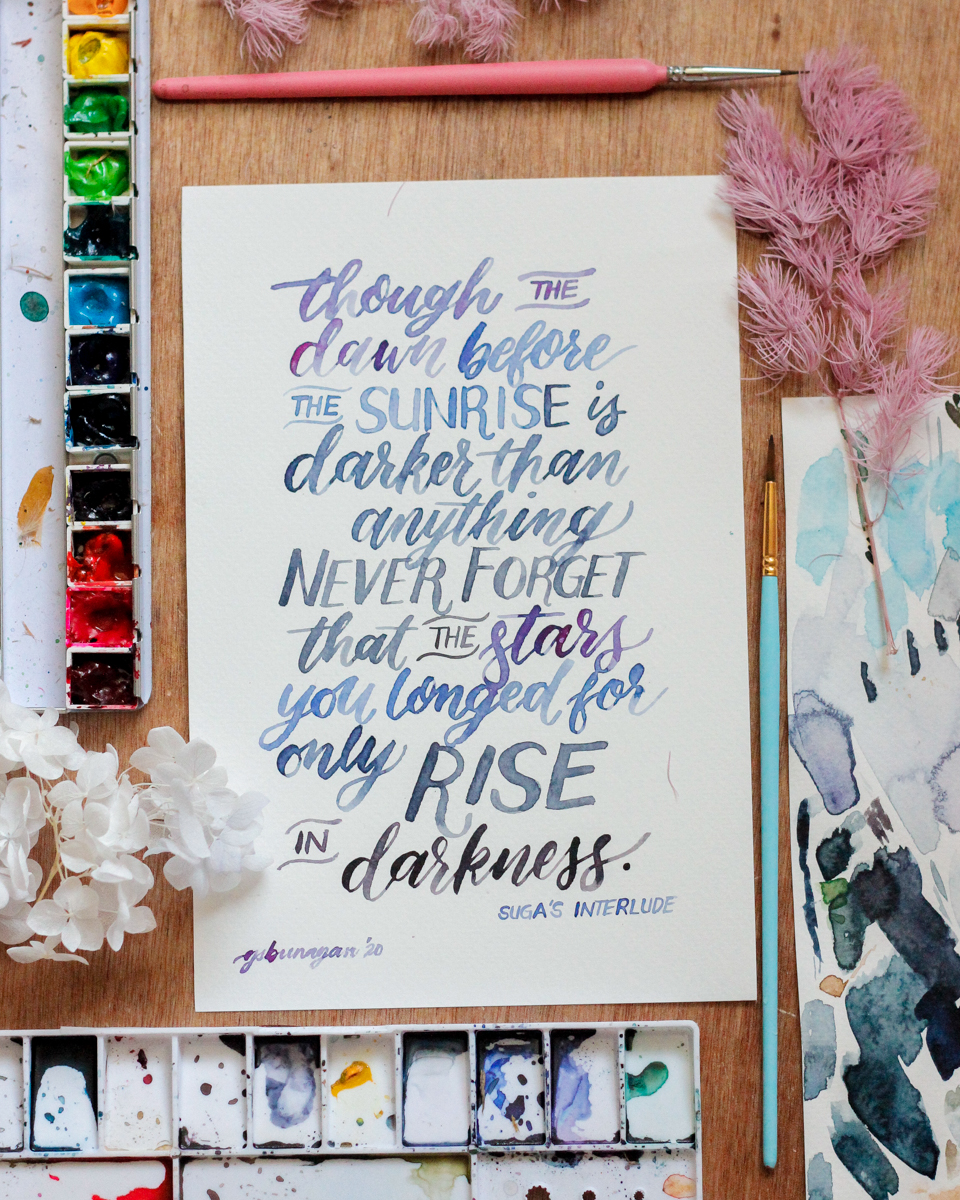 though THE
dawn before
THE SUNRISE is
darker than
anything
NEVER FORGET
that THE stars
you longed for
only RISE
IN darkness.
SUGA'S INTERLUDE
gsbunagan '20